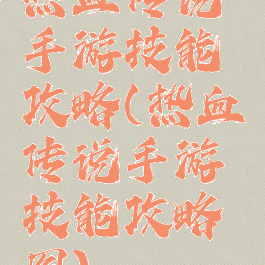 热血传说
手游技能
攻略(热血
传说手游
技能攻略
图)